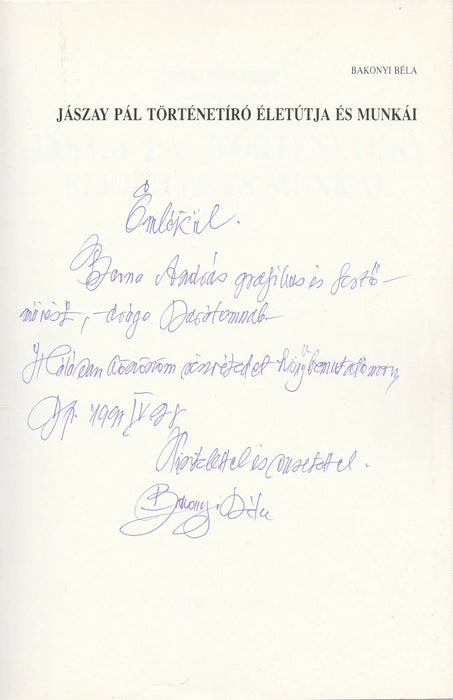 BAKONYI BÉLA
JÁSZAY PÁL TÖRTÉNETÍRÓ ÉLETÚTJA ÉS MUNKÁI
Emlékül.
Barna András grafikus és festő-
művész, - drága Barátomnak
Hálásan köszönöm részvételed könyvbemutatómon,
Bp. 1991 IV
Tisztelettel és szeretettel.
Bakonyi Béla